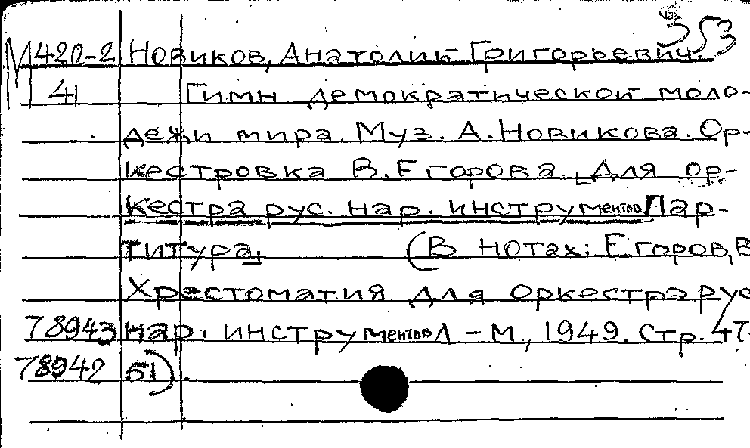 353
М420-2 Новиков, Анатолий Григорьевич.
4 Гимн демократической моло-
дежи мира. Муз. А. Новикова. Ор-
кестровка В. Егорова. Для ор-
кестра рус. нар. инструментов Пар-
титура. (В нотах: Егоров, В
Хрестоматия для оркестра рус
78943 нар. инструментов Л-М., 1949. Стр. 47-
78942 51).